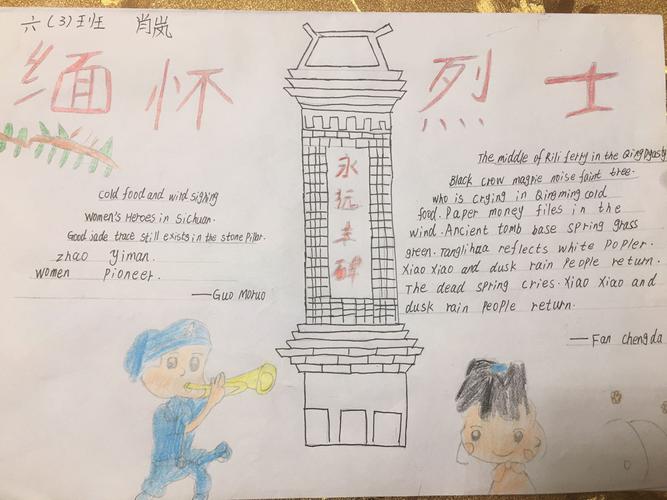 六(3)班 肖岚
缅怀 烈士
永远丰碑
cold food and wind sighing
women's Heroes in Sichuan.
Good jade trace still exists in the stone Pillar.
zhao Yiman.
women Pioneer.
—Guo Moruo
The middle of Rili ferry in the Qing Dyasty
Black crow magpie noise faint tree.
who is crying in Qingming cold
food. Paper money files in the
wind. Ancient tomb base spring grass
green. Tanglihua reflects white Popler.
Xiao Xiao and dusk rain People return.
The dead spring cries. Xiao Xiao and
dusk rain People return.
—Fan chengda